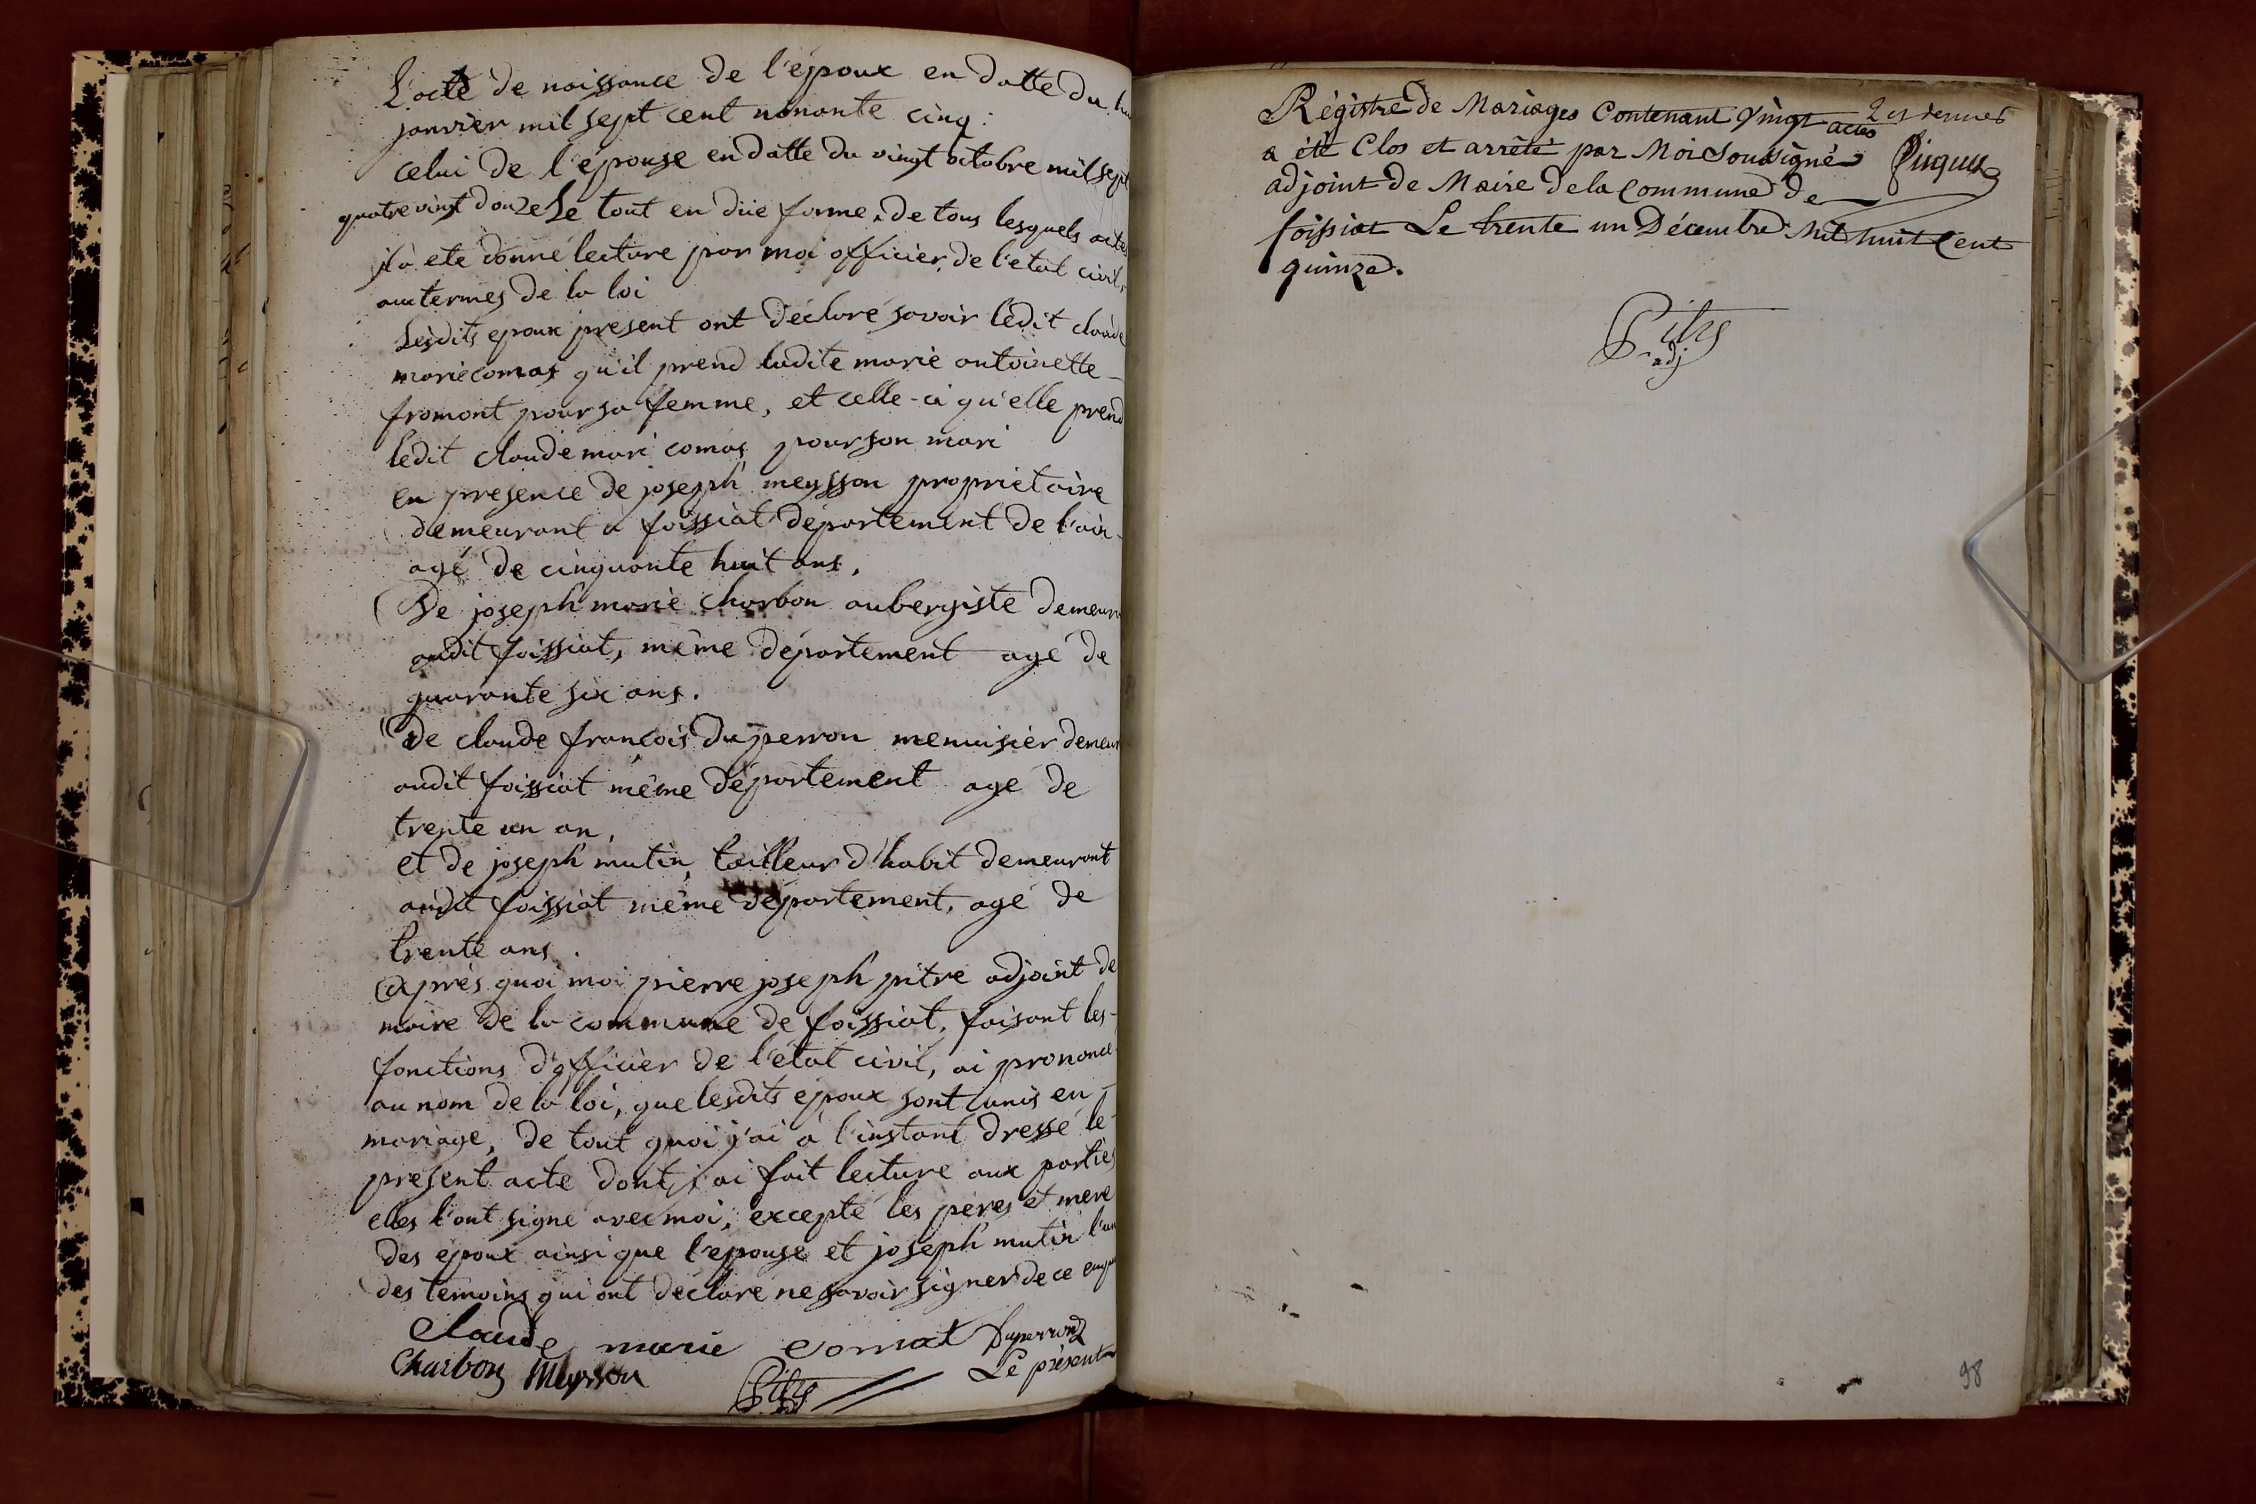 L'acte de naissance de l'époux en datte du
janvier mil sept cent nonante cinq :
celui de l'épouse en datte du vingt octobre mil sept
quatre vingt douze Le tout en düe forme, de tous lesquels actes
il a eté donné lecture par moi officier de l'etat civil,
aux termes de la loi
Lesdits epoux present ont déclaré savoir ledit claude
marie comas qu'il prend ladite marie antoinette
fromont pour sa femme, et celle-ci qu'elle prend
ledit claude mari comas pour son mari
en presence de joseph meysson proprietaire
demeurant a foissiat département de l'ain
agé de cinquante huit ans,
De joseph marie charbon aubergiste demeura
audit foissiat, même département agé de
quarante six ans.
De claude françois duperron menuisier demeur
audit foissiat même département agé de
trente un an,
et de joseph mutin, tailleur d'habit demeurant
audit foissiat même département, agé de
trente ans.
après quoi moi pierre joseph pitre adjoint de
maire de la commune de foissiat, faisant les
fonctions d'officier de l'état civil, ai prononcé
au nom de la loi, que lesdits époux sont unis en
mariage, de tout quoi j'ai à l'instant dressé le
présent acte dont j'ai fait lecture aux parties
elles l'ont signé avec moi, excepté les pères et mere
des époux ainsi que l'epouse et joseph mutin l'un
des temoins qui ont déclaré ne savoir signer de ce enq
Claude marie comat Duperron
Charbon Meysson Le présent
Pitre
Régistre de Mariages Contenant Vingt actes
a été Clos et arrêté par Moi Soussigné
adjoint de Maire de la Commune de
foissiat Le trente un Décembre Mil huit Cent
quinze.
Pitre
adj
98